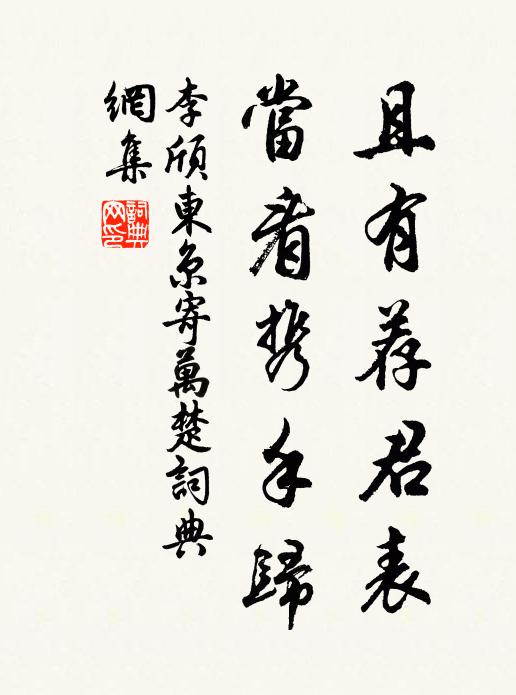 且有荐君表
當看携手歸
李頎東京寄萬楚詞典
網集
詞典網印